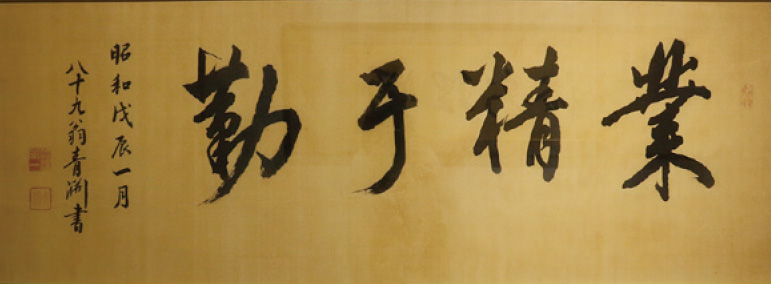 業精于勤
昭和戊辰一月
八十九翁青淵書